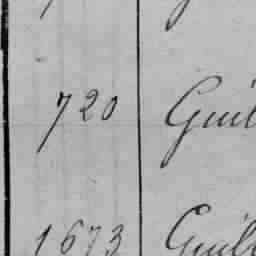 720 Guil
1673 Guil